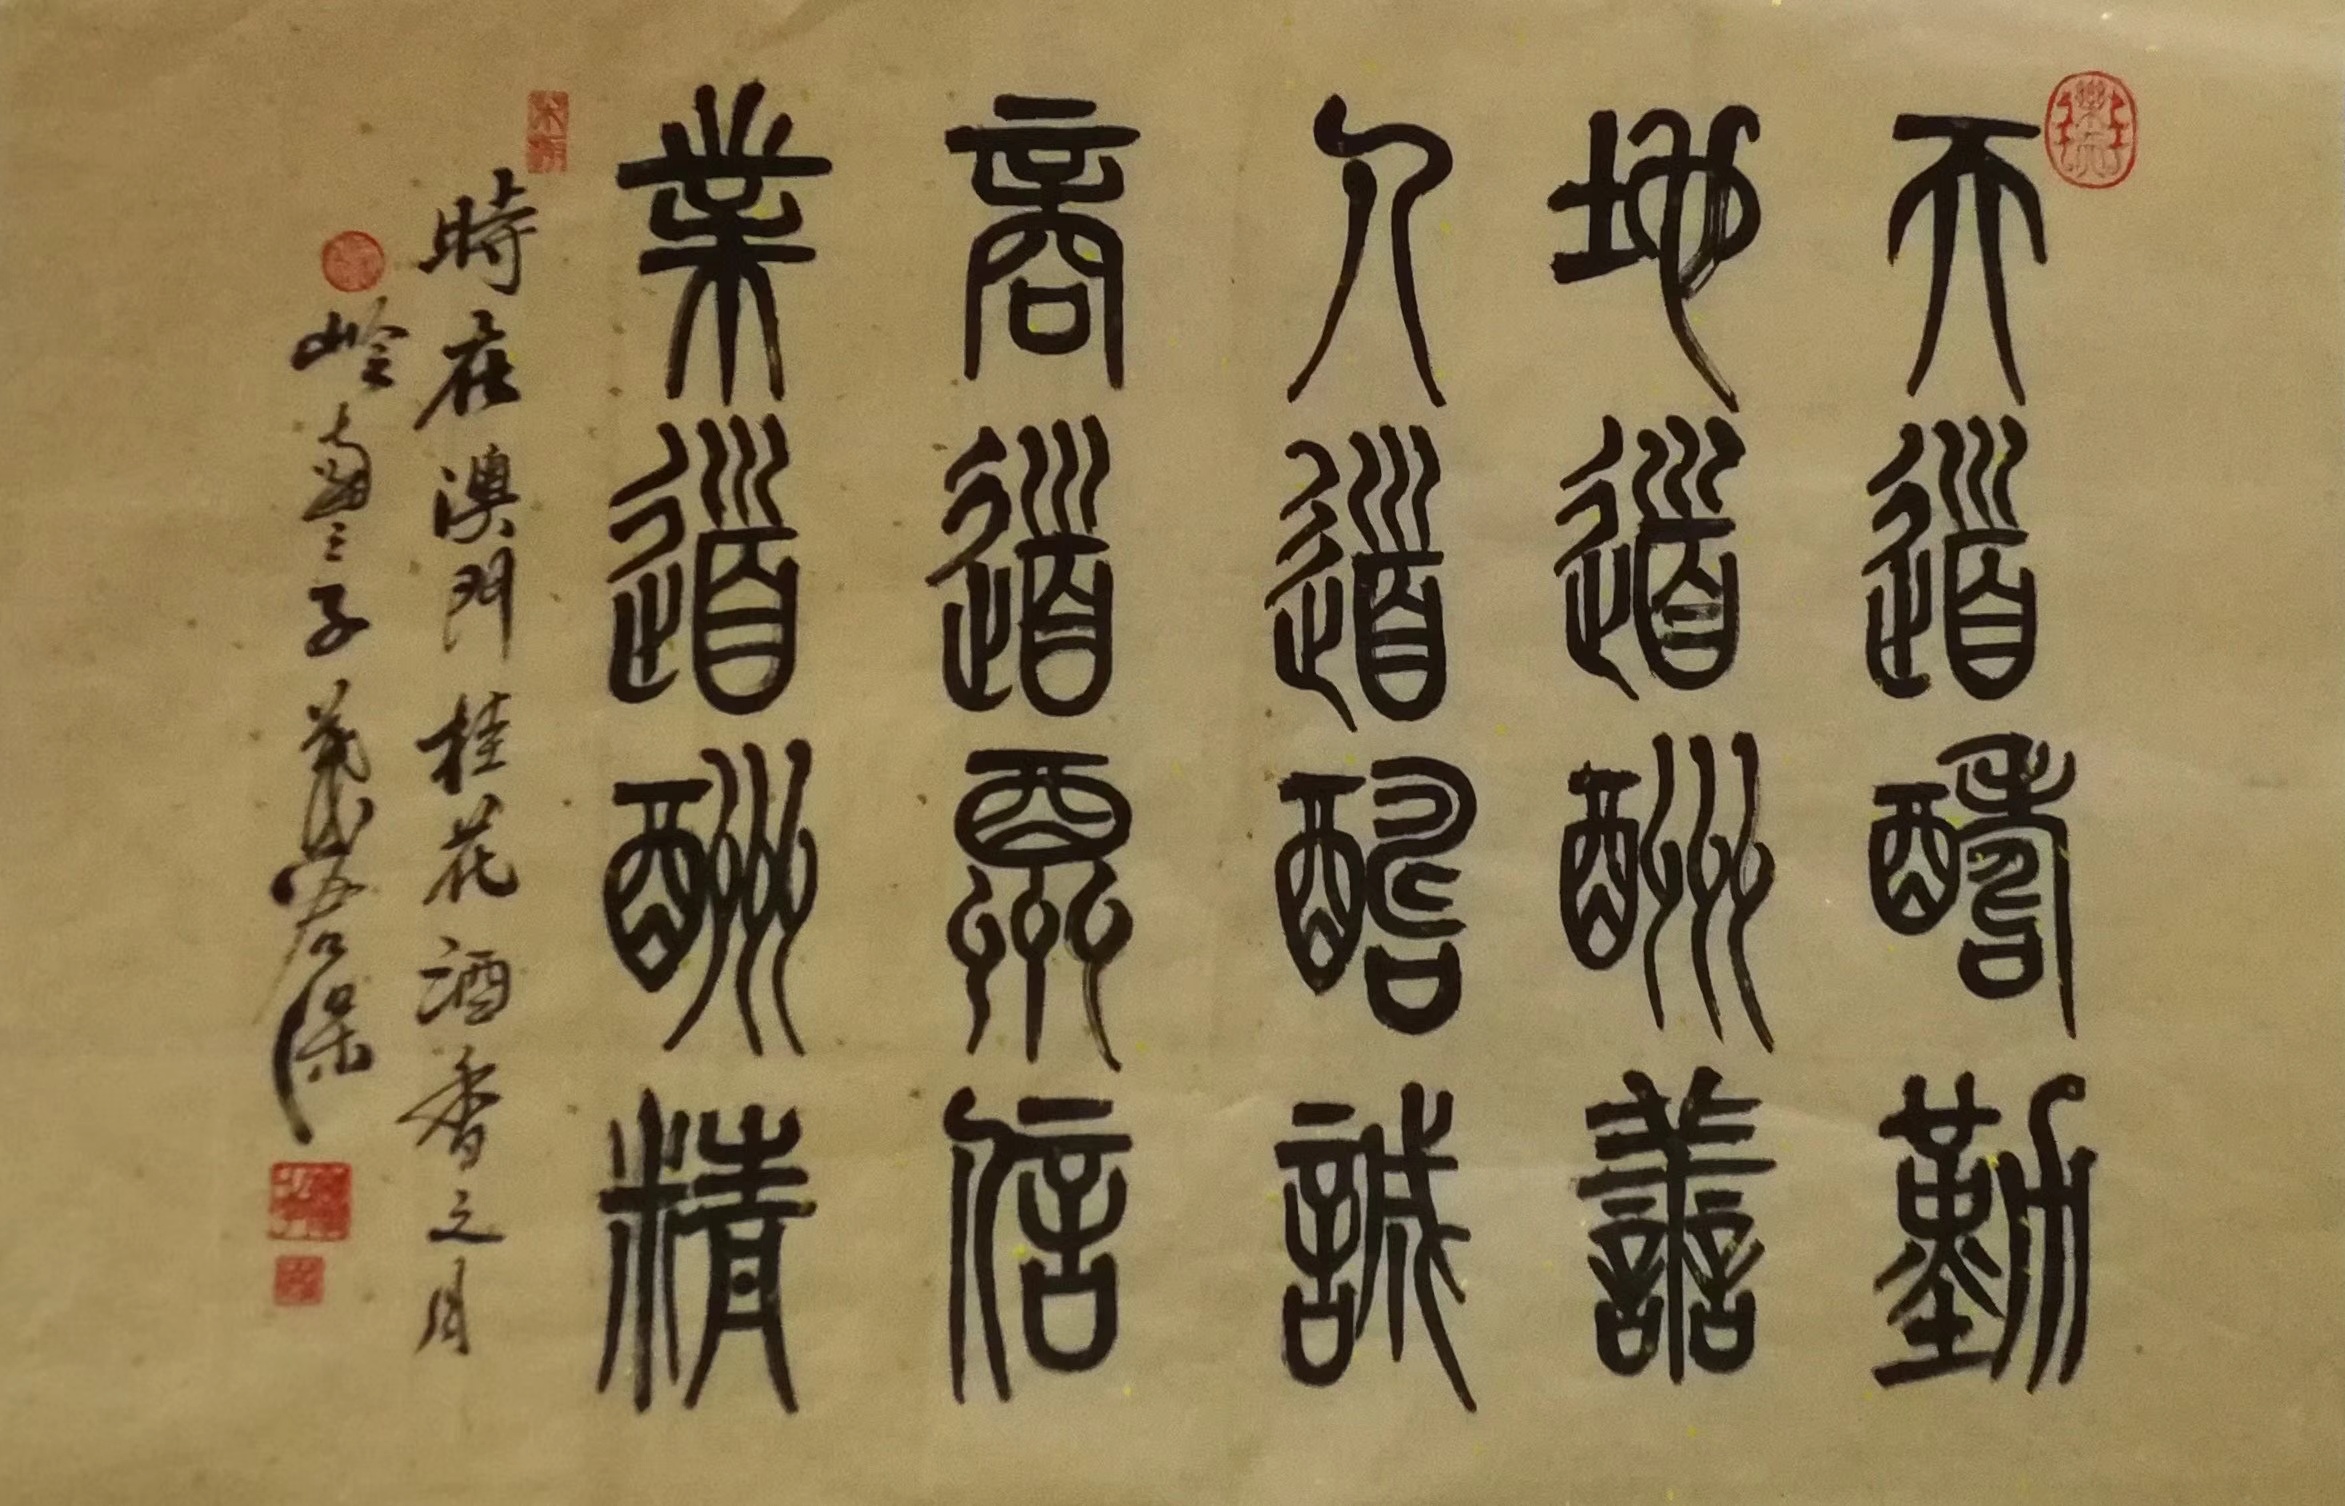 天道醻勤
地道酬善
人道酬誠
商道酬信
業道酬精
時在澳門桂花酒香之月
岭南三子